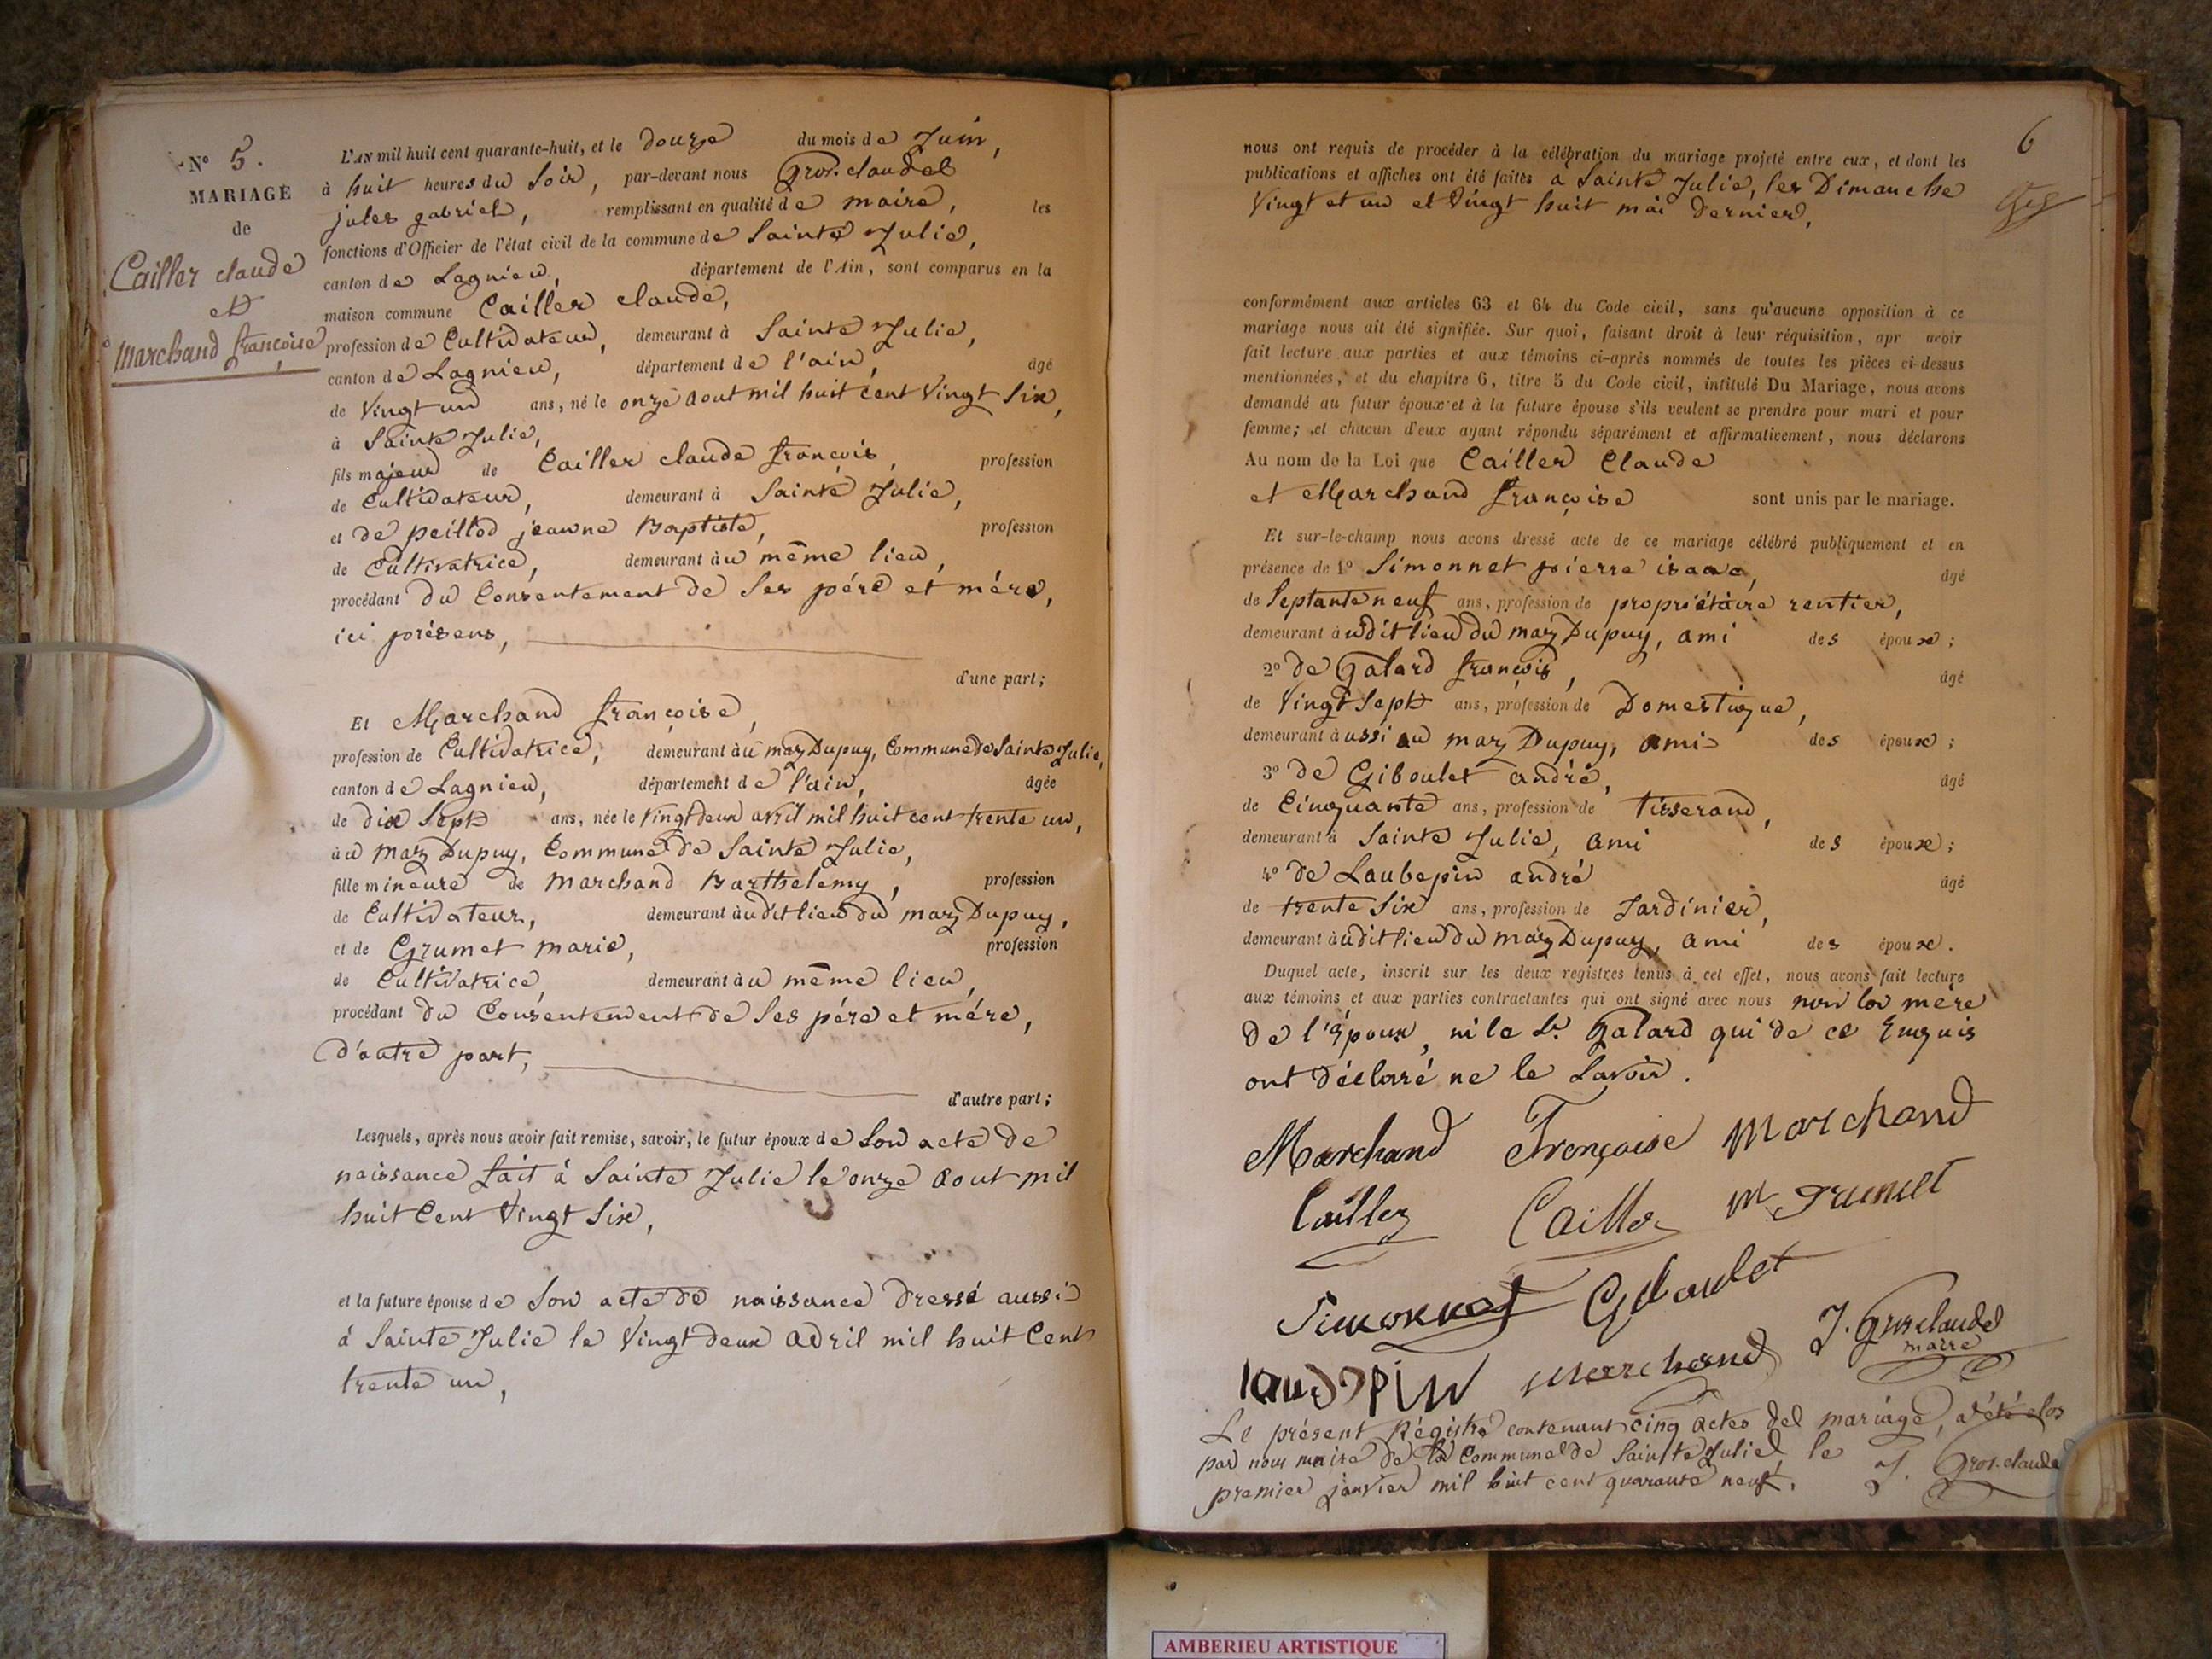 N° 5.
MARIAGE
de
Cailler claude
et
Marchand françoise
L'AN mil huit cent quarante-huit, et le douze du mois de Juin,
à huit heures du Soir, par-devant nous Gros-claude
jules gabriel, remplissant en qualité de maire, les
fonctions d'Officier de l'état civil de la commune de Sainte Julie,
canton de Lagnieu, département de l'Ain, sont comparus en la
maison commune Cailler claude,
profession de Cultivateur, demeurant à Sainte Julie,
canton de Lagnieu, département de l'ain, âgé
de Vingt un ans, né le onze aout mil huit cent Vingt Six,
à Sainte Julie,
fils majeur de Cailler claude françois, profession
de Cultivateur, demeurant à Sainte Julie,
et de peillod jeanne Baptiste, profession
de Cultivatrice, demeurant au même lieu,
procédant du Consentement de Ses père et mère,
ici présens,
d'une part;
Et Marchand françoise,
profession de Cultivatrice, demeurant au maz Dupuy, Commune de Sainte Julie,
canton de Lagnieu, département de l'ain, âgée
de dix Sept ans, née le Vingt deux avril mil huit cent trente un,
au Maz Dupuy, Commune de Sainte Julie,
fille mineure de Marchand Barthelemy, profession
de Cultivateur, demeurant audit lieu du maz Dupuy,
et de Grumet marie, profession
de Cultivatrice, demeurant au même lieu,
procédant du Consentement de Ses père et mére,
d'autre part,
d'autre part;
Lesquels, après nous avoir fait remise, savoir, le futur époux de Son acte de
naissance fait à Sainte Julie le onze aout mil
huit Cent Vingt Six,
et la future épouse de Son acte de naissance dressé aussi
à Sainte Julie le Vingt deux avril mil huit Cent
trente un,
6
nous ont requis de procéder à la célébration du mariage projeté entre eux, et dont les
publications et affiches ont été faites à Sainte Julie, les Dimanche
Vingt et un et Vingt huit mai dernier,
conformément aux articles 63 et 64 du Code civil, sans qu'aucune opposition à ce
mariage nous ait été signifiée. Sur quoi, faisant droit à leur réquisition, apr avoir
fait lecture aux parties et aux témoins ci-après nommés de toutes les pièces ci-dessus
mentionnées, et du chapitre 6, titre 5 du Code civil, intitulé Du Mariage, nous avons
demandé au futur époux et à la future épouse s'ils veulent se prendre pour mari et pour
femme; et chacun d'eux ayant répondu séparément et affirmativement, nous déclarons
Au nom de la Loi que Cailler Claude
et Marchand françoise sont unis par le mariage.
Et sur-le-champ nous avons dressé acte de ce mariage célébré publiquement et en
présence de 1° Simonnet pierre isaac, âgé
de Septante neuf ans, profession de propriétaire rentier,
demeurant audit lieu du maz Dupuy, ami des époux;
2° de Galard françois, âgé
de Vingt Sept ans, profession de Domestique,
demeurant aussi au maz Dupuy, ami des époux;
3° de Giboulet andré, âgé
de Cinquante ans, profession de tisserand,
demeurant à Sainte Julie, ami des époux;
4° de Laubepin andré âgé
de trente Six ans, profession de Jardinier,
demeurant audit lieu du maz Dupuy, ami des époux.
Duquel acte, inscrit sur les deux registres tenus à cet effet, nous avons fait lecture
aux témoins et aux parties contractantes qui ont signé avec nous non la mère
de l'Epoux, ni le Sr. Galard qui de ce Enquis
ont déclaré ne le Savoir.
Marchand Françoise Marchand
Cailler Cailler M Grumet
Simonnet Giboulet
J. Grosclaude
maire
marchand
Le présent Régistre contenant cinq actes de mariage, a été clos
par nous maire de la Commune de Sainte Julie, le
premier janvier mil huit cent quarante neuf. J. Gros-claude
AMBERIEU ARTISTIQUE